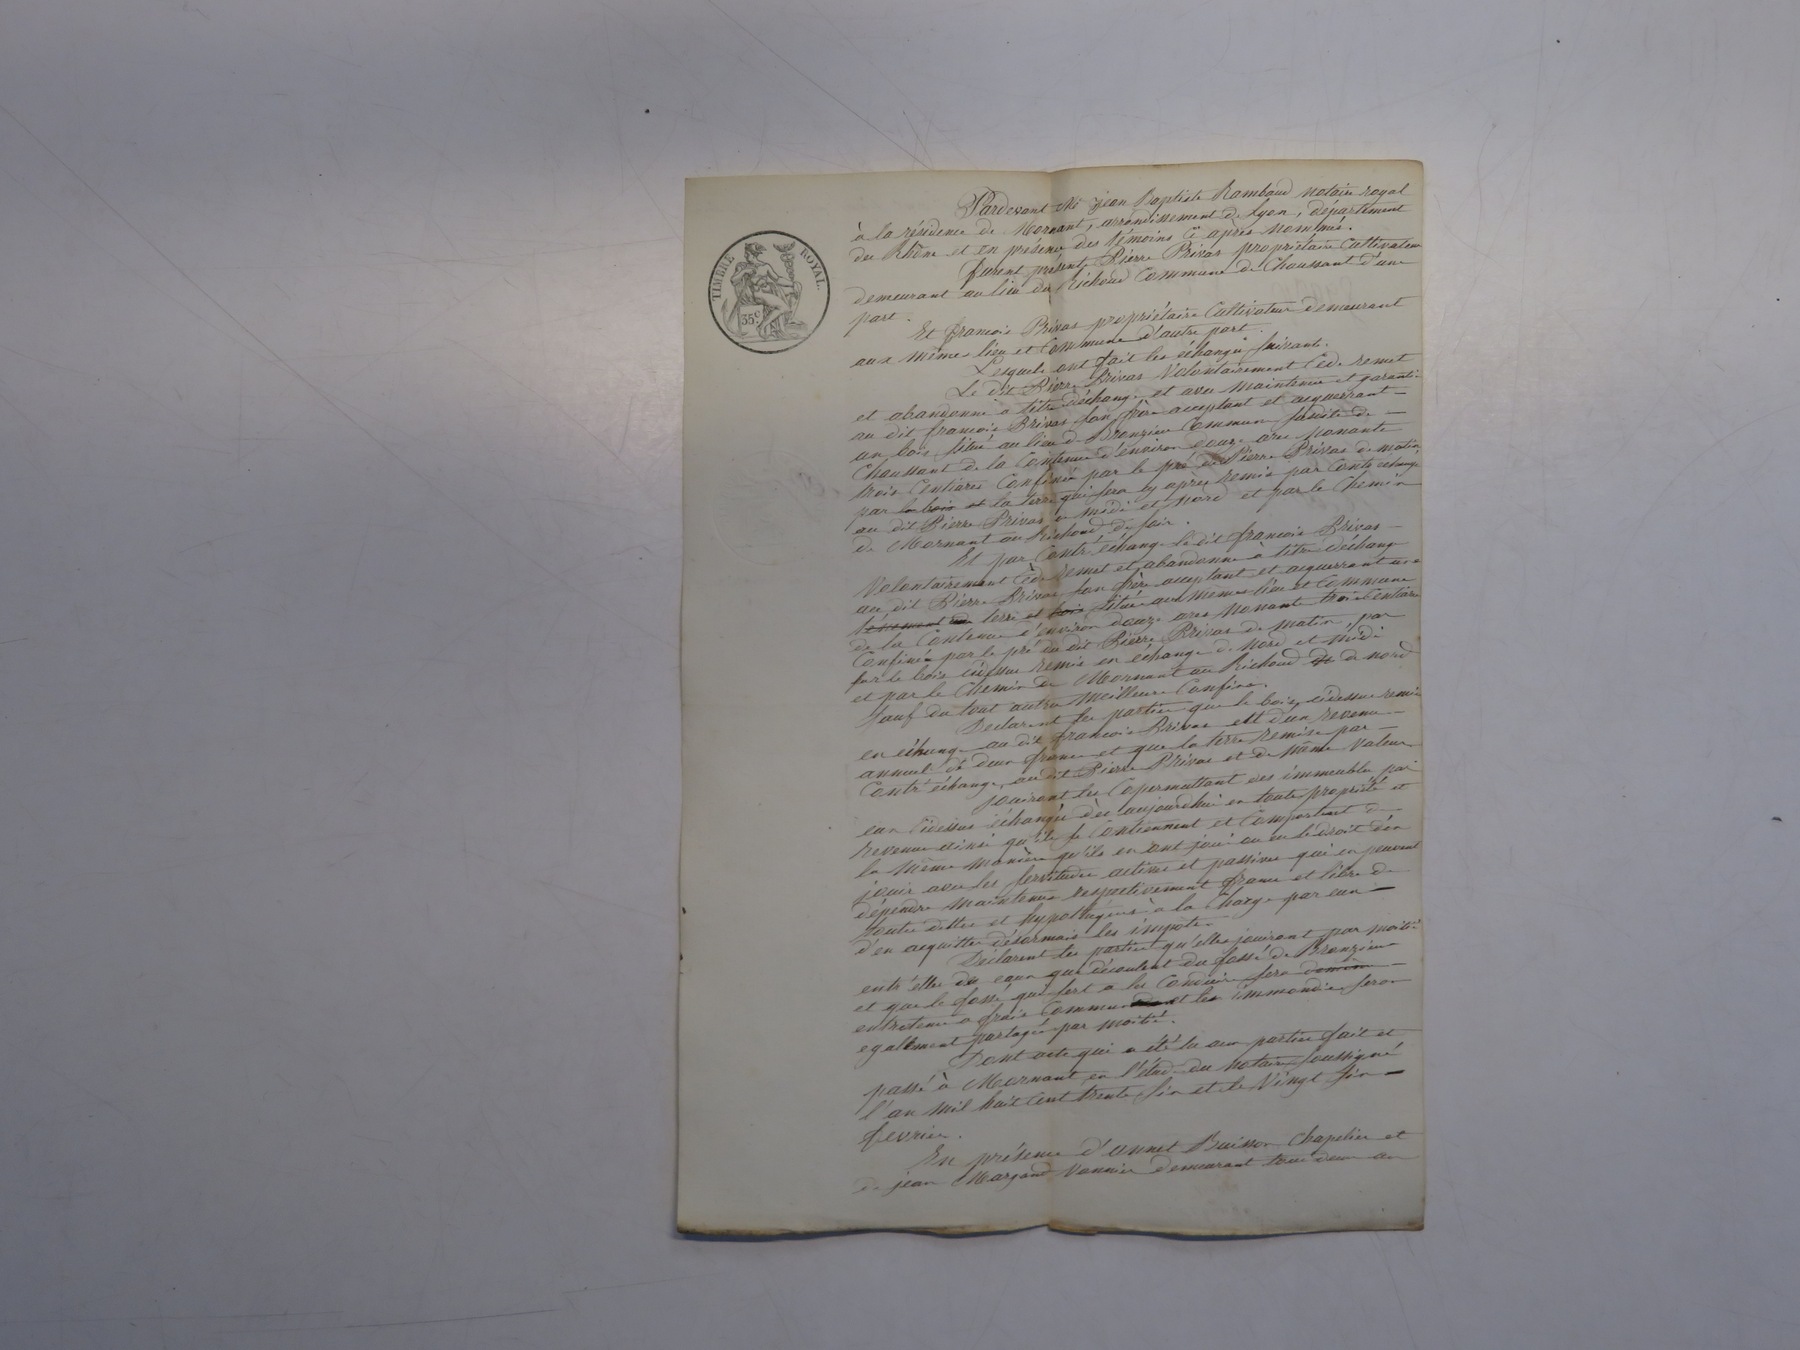 TIMBRE ROYAL.
35 c
Pardevant Me Jean Baptiste Rambaud notaire royal
à la résidence de Mornant, arrondissement de Lyon, département
du Rhône et en présence des témoins ci après nommés.
furent présents Pierre Privas propriétaire Cultivateur
demeurant au lieu du Richoud Commune de Chaussant d'une
part.
Et françois Privas propriétaire Cultivateur demeurant
aux mêmes lieu et Commune d'autre part.
Lesquels ont fait les échanges suivant.
Le dit Pierre Privas Volontairement Cède remet
et abandonne à titre d'échange et avec maintenue et garantie
au dit françois Privas son frère acceptant et acquerrant
un bois situé au lieu de Bronzieu Commune susdite de
Chaussant de la Contenue d'environ douze ares Nonante
trois Centiares Confinée par le pré du Pierre Privas de matin
par le bois et la terre qui sera cy après remis par Contr échange
au dit Pierre Privas de midi et Nord et par le Chemin
de Mornant au Richoud de soir.
Et par Contr'échange le dit françois Privas
Volontairement Cède remet et abandonne à titre d'échange
au dit Pierre Privas son frère acceptant et acquerrant une
terre et bois située aux mêmes lieu et Commune
de la Contenue d'environ douze ares Nonante trois Centiares
Confinée par le pré du dit Pierre Privas de matin, par
par le bois cidessus remis en échange de Nord et midi
et par le Chemin de Mornant au Richoud de nord
Sauf du tout autres meilleurs Confins.
Déclarent les parties que le bois cidessus remis
en échange au dit françois Privas est d'un revenu
annuel de deux francs et que la terre remise par
Contr'échange au dit Pierre Privas et de même valeur
jouiront les Copermuttant des immeubles par
eux Cidessus échangés dès aujourdhui en toute propriété et
revenu ainsi qu'ils se Contiennent et Comportent de
la même manière qu'ils en ont joui ou eu le droit d'en
jouir avec les servitudes actives et passives qui en peuvent
dépendre maintenus respectivement francs et libres de
toutes dettes et hypothèques à la Charge par eux
d'en acquitter désormais les impôts.
Déclarent les parties qu'elles jouiront par moitié
entr'elles des eaux que découlent du fossé de Bronzieu
et que le fossé qui sert a les Conduire sera
entretenu a frais Communs et les immondices seron
egalement partagées par moitié.
Dont acte qui a été lu aux parties fait et
passé à Mornant en l'étude du notaire soussigné
l'an mil huit Cent trente six et le Vingt six
fevrier.
En présence d'annet Buisson Chapelier et
de jean Margand Vannier demeurant tous deux au